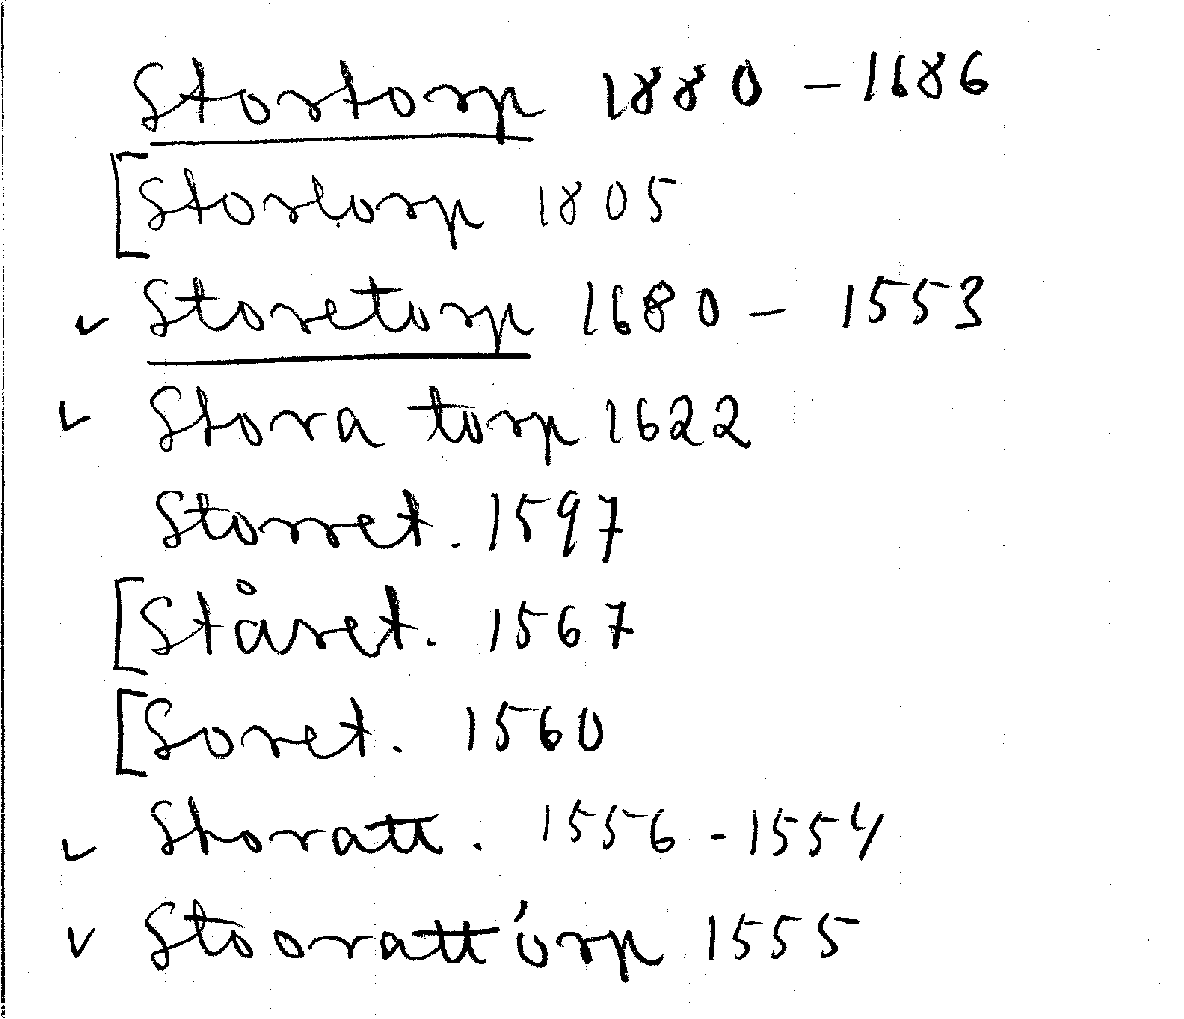 Stortorp 1880 - 1686
[Storlorp 1805
✓ Storetorp 1680 - 1553
✓ Stora torp 1622
Storret. 1597
[Ståret. 1567
[Soret. 1560
✓ Storatt. 1556 - 1554
✓ Stoorattórp 1555